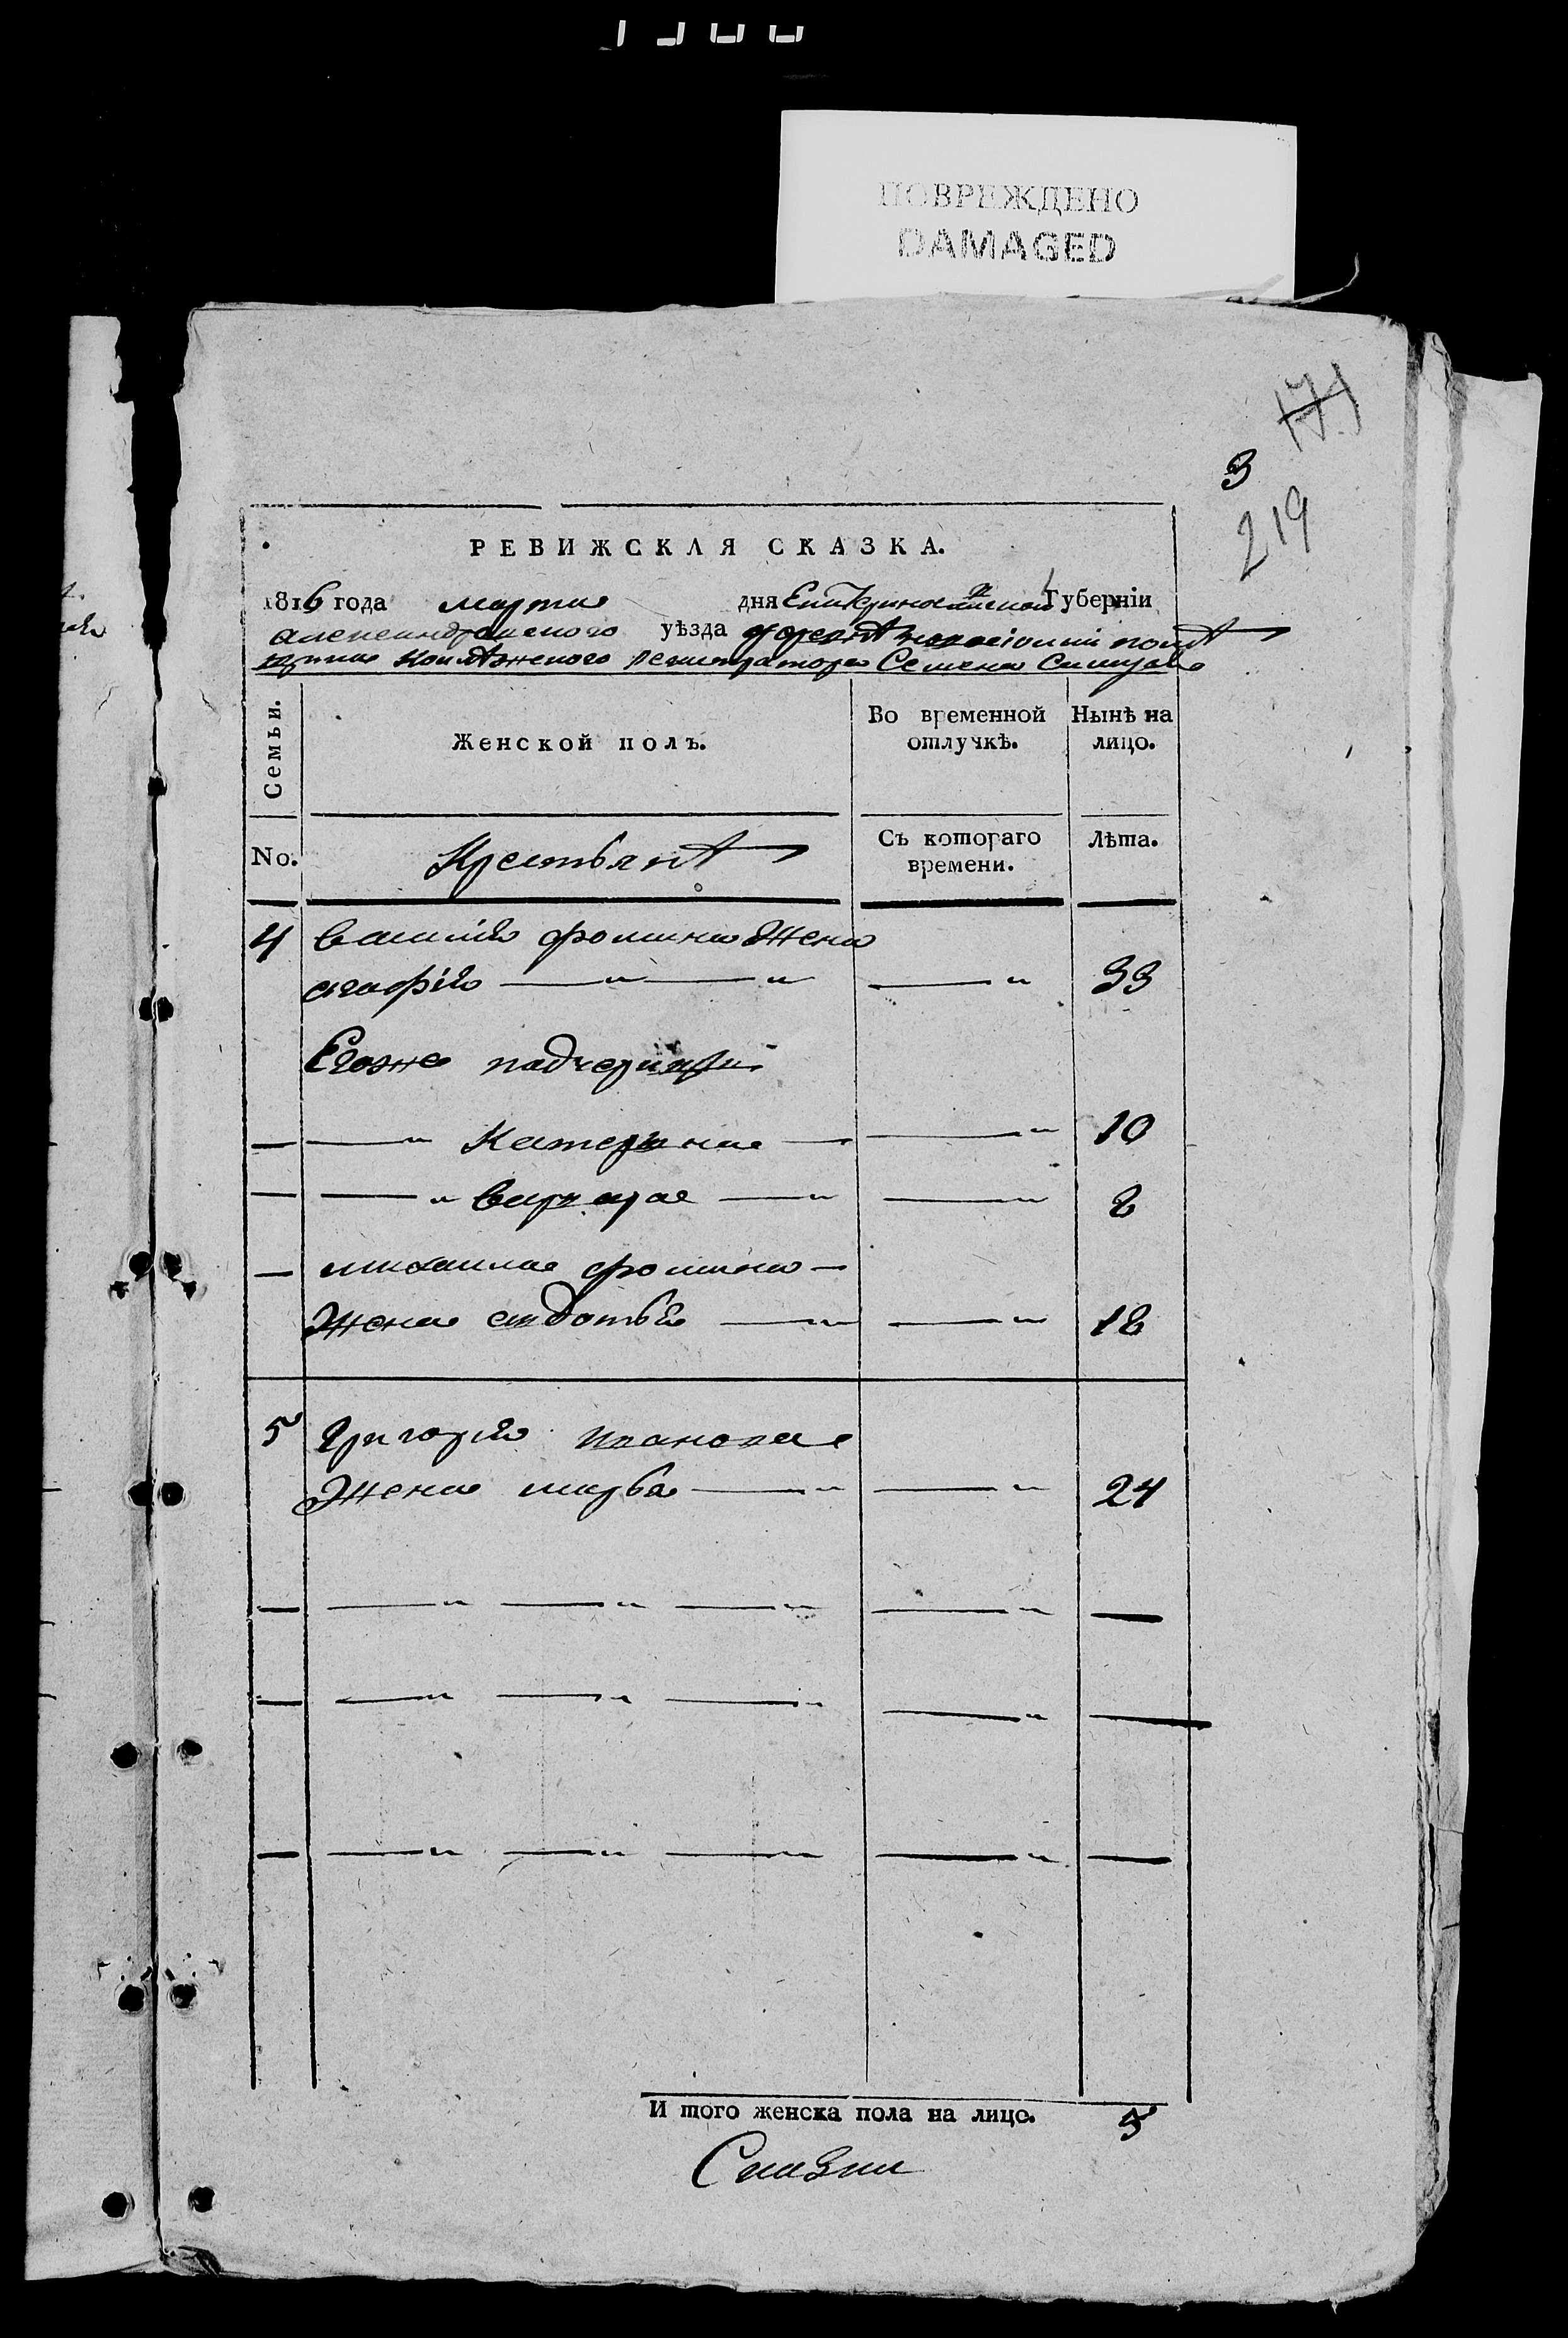 ПОВРЕЖДЕНО
DAMAGED
171
3
219
РЕВИЖСКАЯ СКАЗКА.
1816 года марта дня Екатеринославской Губерніи
александрійского уѣзда
колѣжского регистратора Семена
Семьи. Женской полъ. Во временной отлучкѣ. Нынѣ на лицо.
No. Крестьянѣ Съ котораго времени. Лѣта.
4 василія фомина Жена
агафія — " — " — " 33
Егоже падчерицы
— — " Катерина — — " 10
— — " варвара — " — " 8
— михаила фомина —
Жена авдотья — " — " 18
5 Григорія иванова
Жена марья — " — " 24
— — " — " — " — " —
— — " — " — " — " —
— — " — " — " — " —
И того женска пола на лицо. 5
Сказки